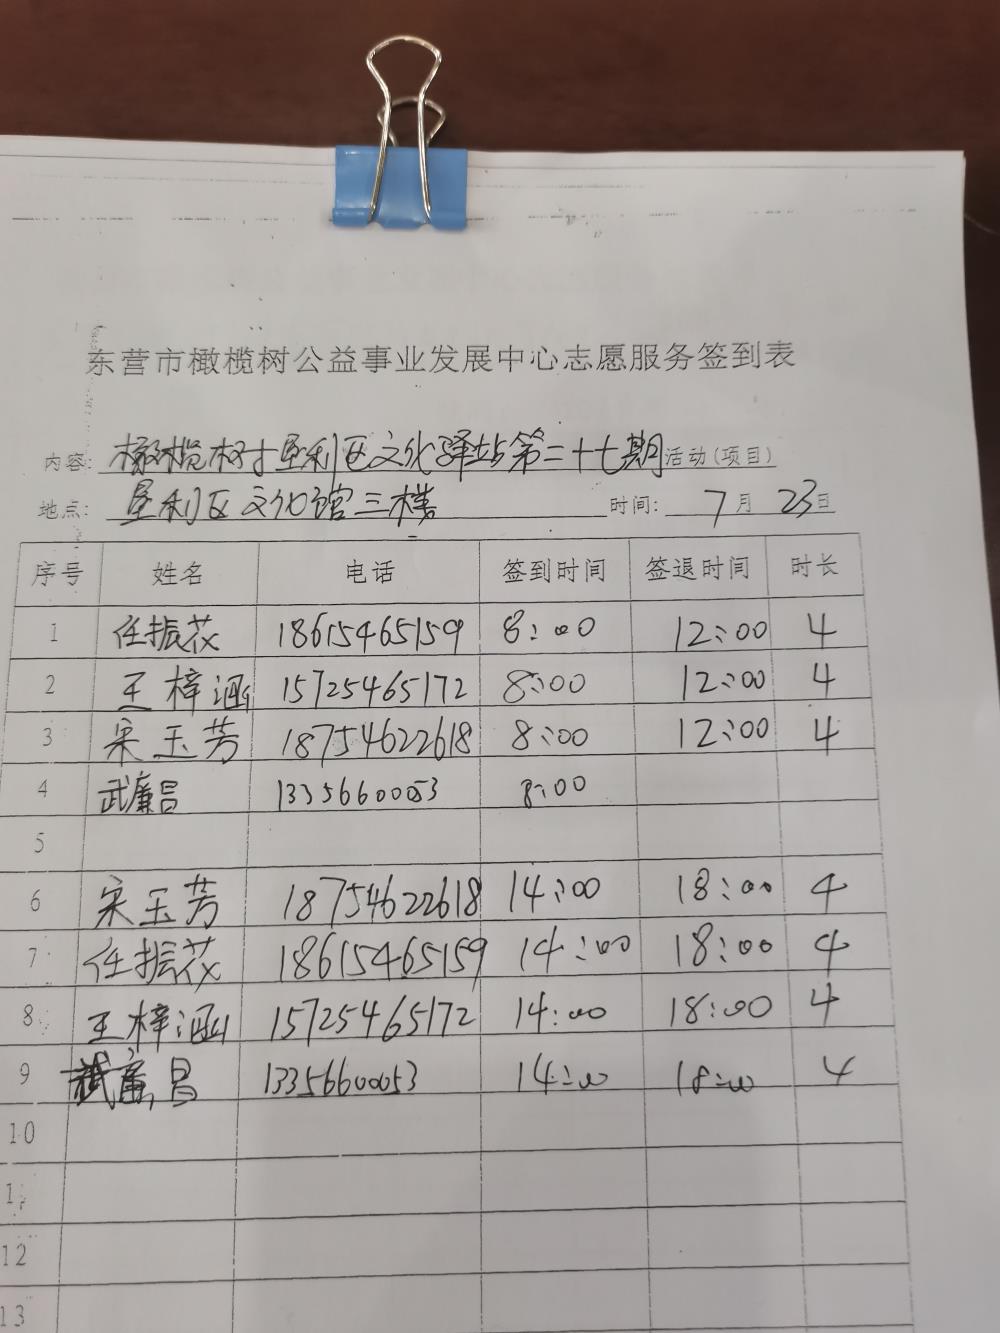 东营市橄榄树公益事业发展中心志愿服务签到表
内容: 橄榄树垦利区文化驿站第二十七期活动(项目)
地点: 垦利区文化馆三楼 时间: 7月23日
序号 姓名 电话 签到时间 签退时间 时长
1 任振花 18615465159 8:00 12:00 4
2 王梓涵 15725465172 8:00 12:00 4
3 宋玉芳 18754622618 8:00 12:00 4
4 武廉昌 13356600053 8:00
5
6 宋玉芳 18754622618 14:00 18:00 4
7 任振花 18615465159 14:00 18:00 4
8 王梓涵 15725465172 14:00 18:00 4
9 武廉昌 13356600053 14:00 18:00 4
10
12
13